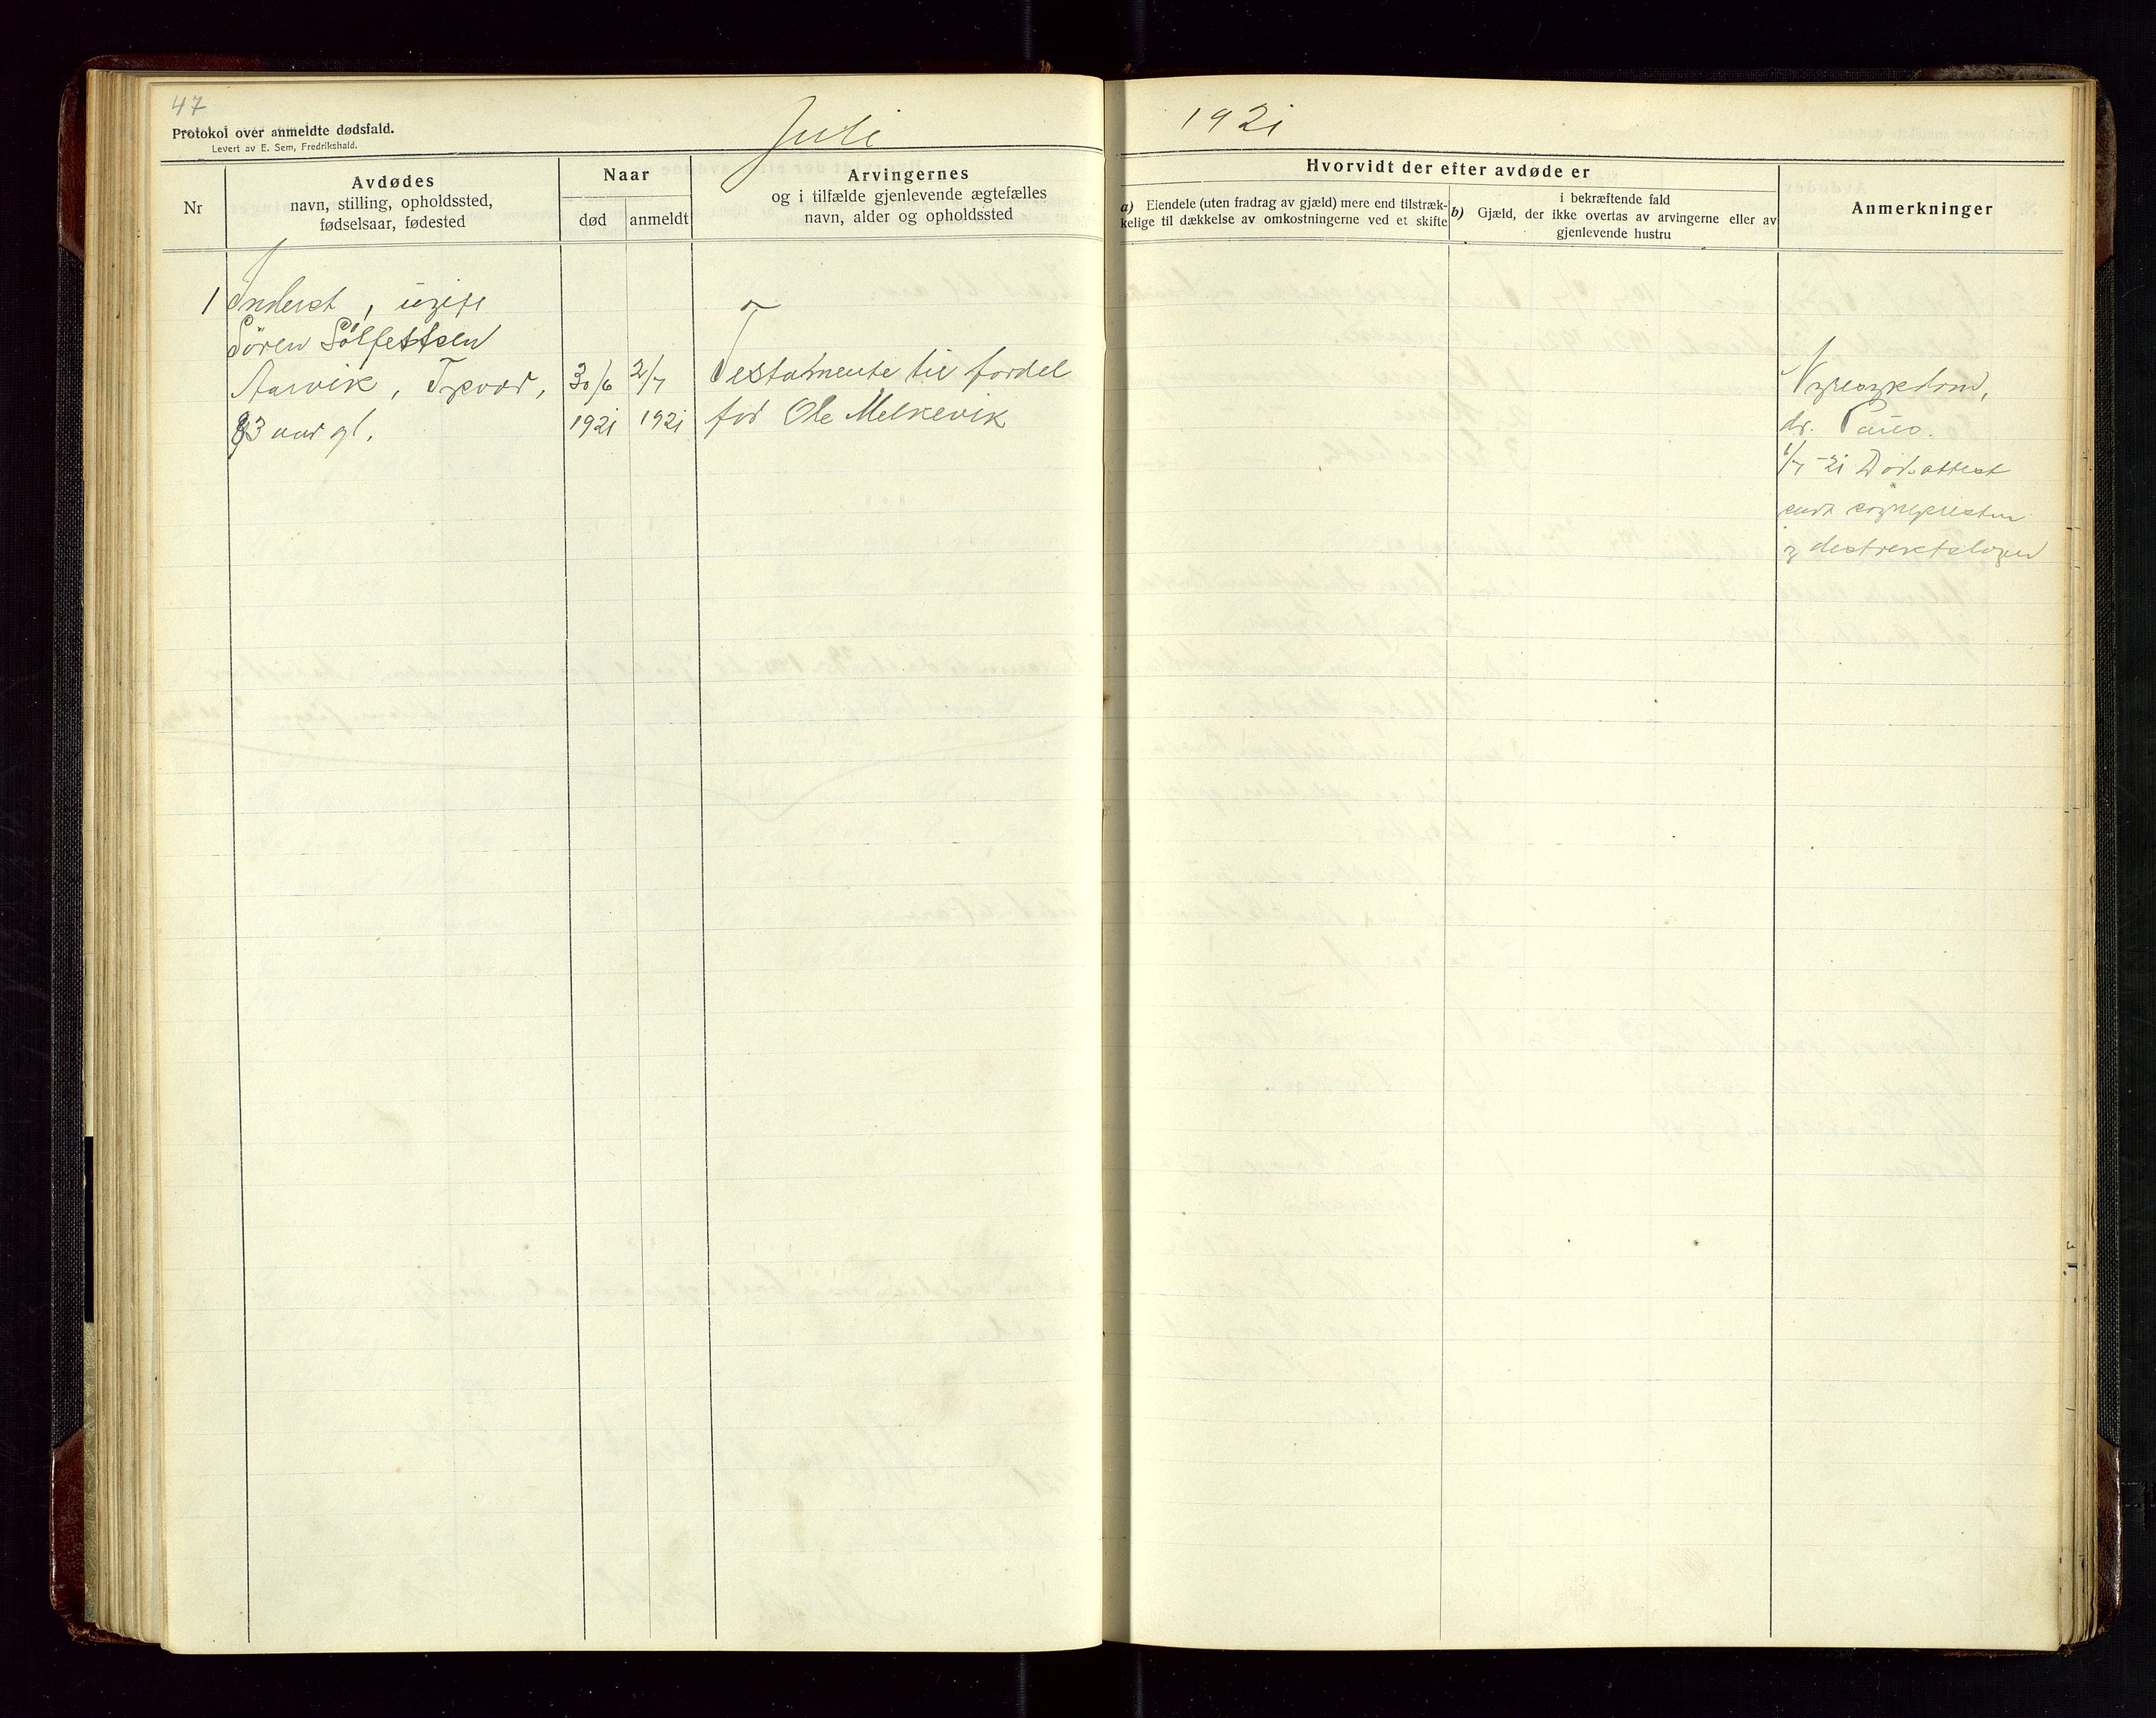 47
Protokol over anmeldte dødsfald.
Levert av E. Sem, Fredrikshald.
Juli
1921
Nr
Avdødes
navn, stilling, opholdssted,
fødselsaar, fødested
Naar
død
anmeldt
Arvingernes
og i tilfælde gjenlevende ægtefælles
navn, alder og opholdssted
Hvorvidt der efter avdøde er
a) Eiendele (uten fradrag av gjæld) mere end tilstræk-
kelige til dækkelse av omkostningerne ved et skifte
i bekræftende fald
b) Gjæld, der ikke overtas av arvingerne eller av
gjenlevende hustru
Anmerkninger
1 Inderst, ugift
Sören Sölfestsen
Aarvik, Tysvær,
83 aar gl.
30/6
1921
2/7
1921
Testamente til fordel
for Ole Melkevik
Nyresykdom,
dr. Paus.
1/7 -21 Dödsattest
sendt sognepresten
og distriktslægen